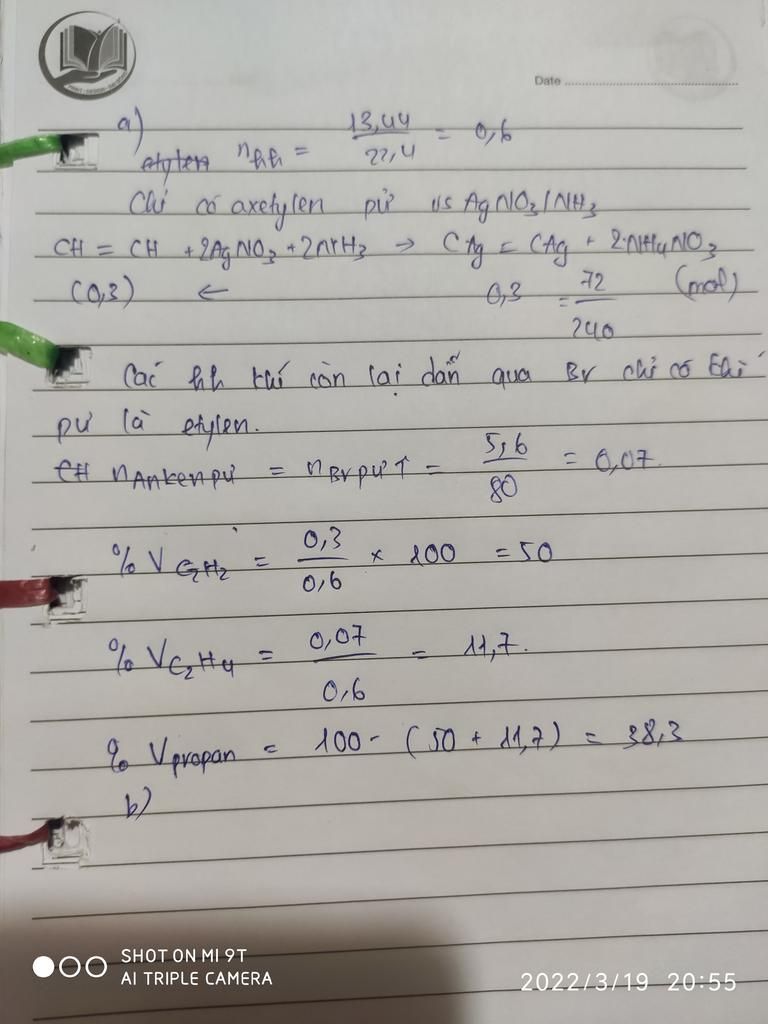 Date
a)
etylen nhh = 13,44 / 22,4 = 0,6
Chỉ có axetylen pứ vs AgNO3/NH3
CH = CH + 2AgNO3 + 2NH3 → CAg = CAg + 2NH4NO3
(0,3) ← 0,3 = 72 / 240 (mol)
Các hh khí còn lại dẫn qua Br chỉ có khí
pứ là etylen.
nAnken pứ = nBr pứ ↑ = 5,6 / 80 = 0,07.
% V C2H2 = 0,3 / 0,6 × 100 = 50
% V C2H4 = 0,07 / 0,6 = 11,7.
% V propan = 100 - (50 + 11,7) = 38,3
b)
SHOT ON MI 9T
AI TRIPLE CAMERA
2022/3/19 20:55